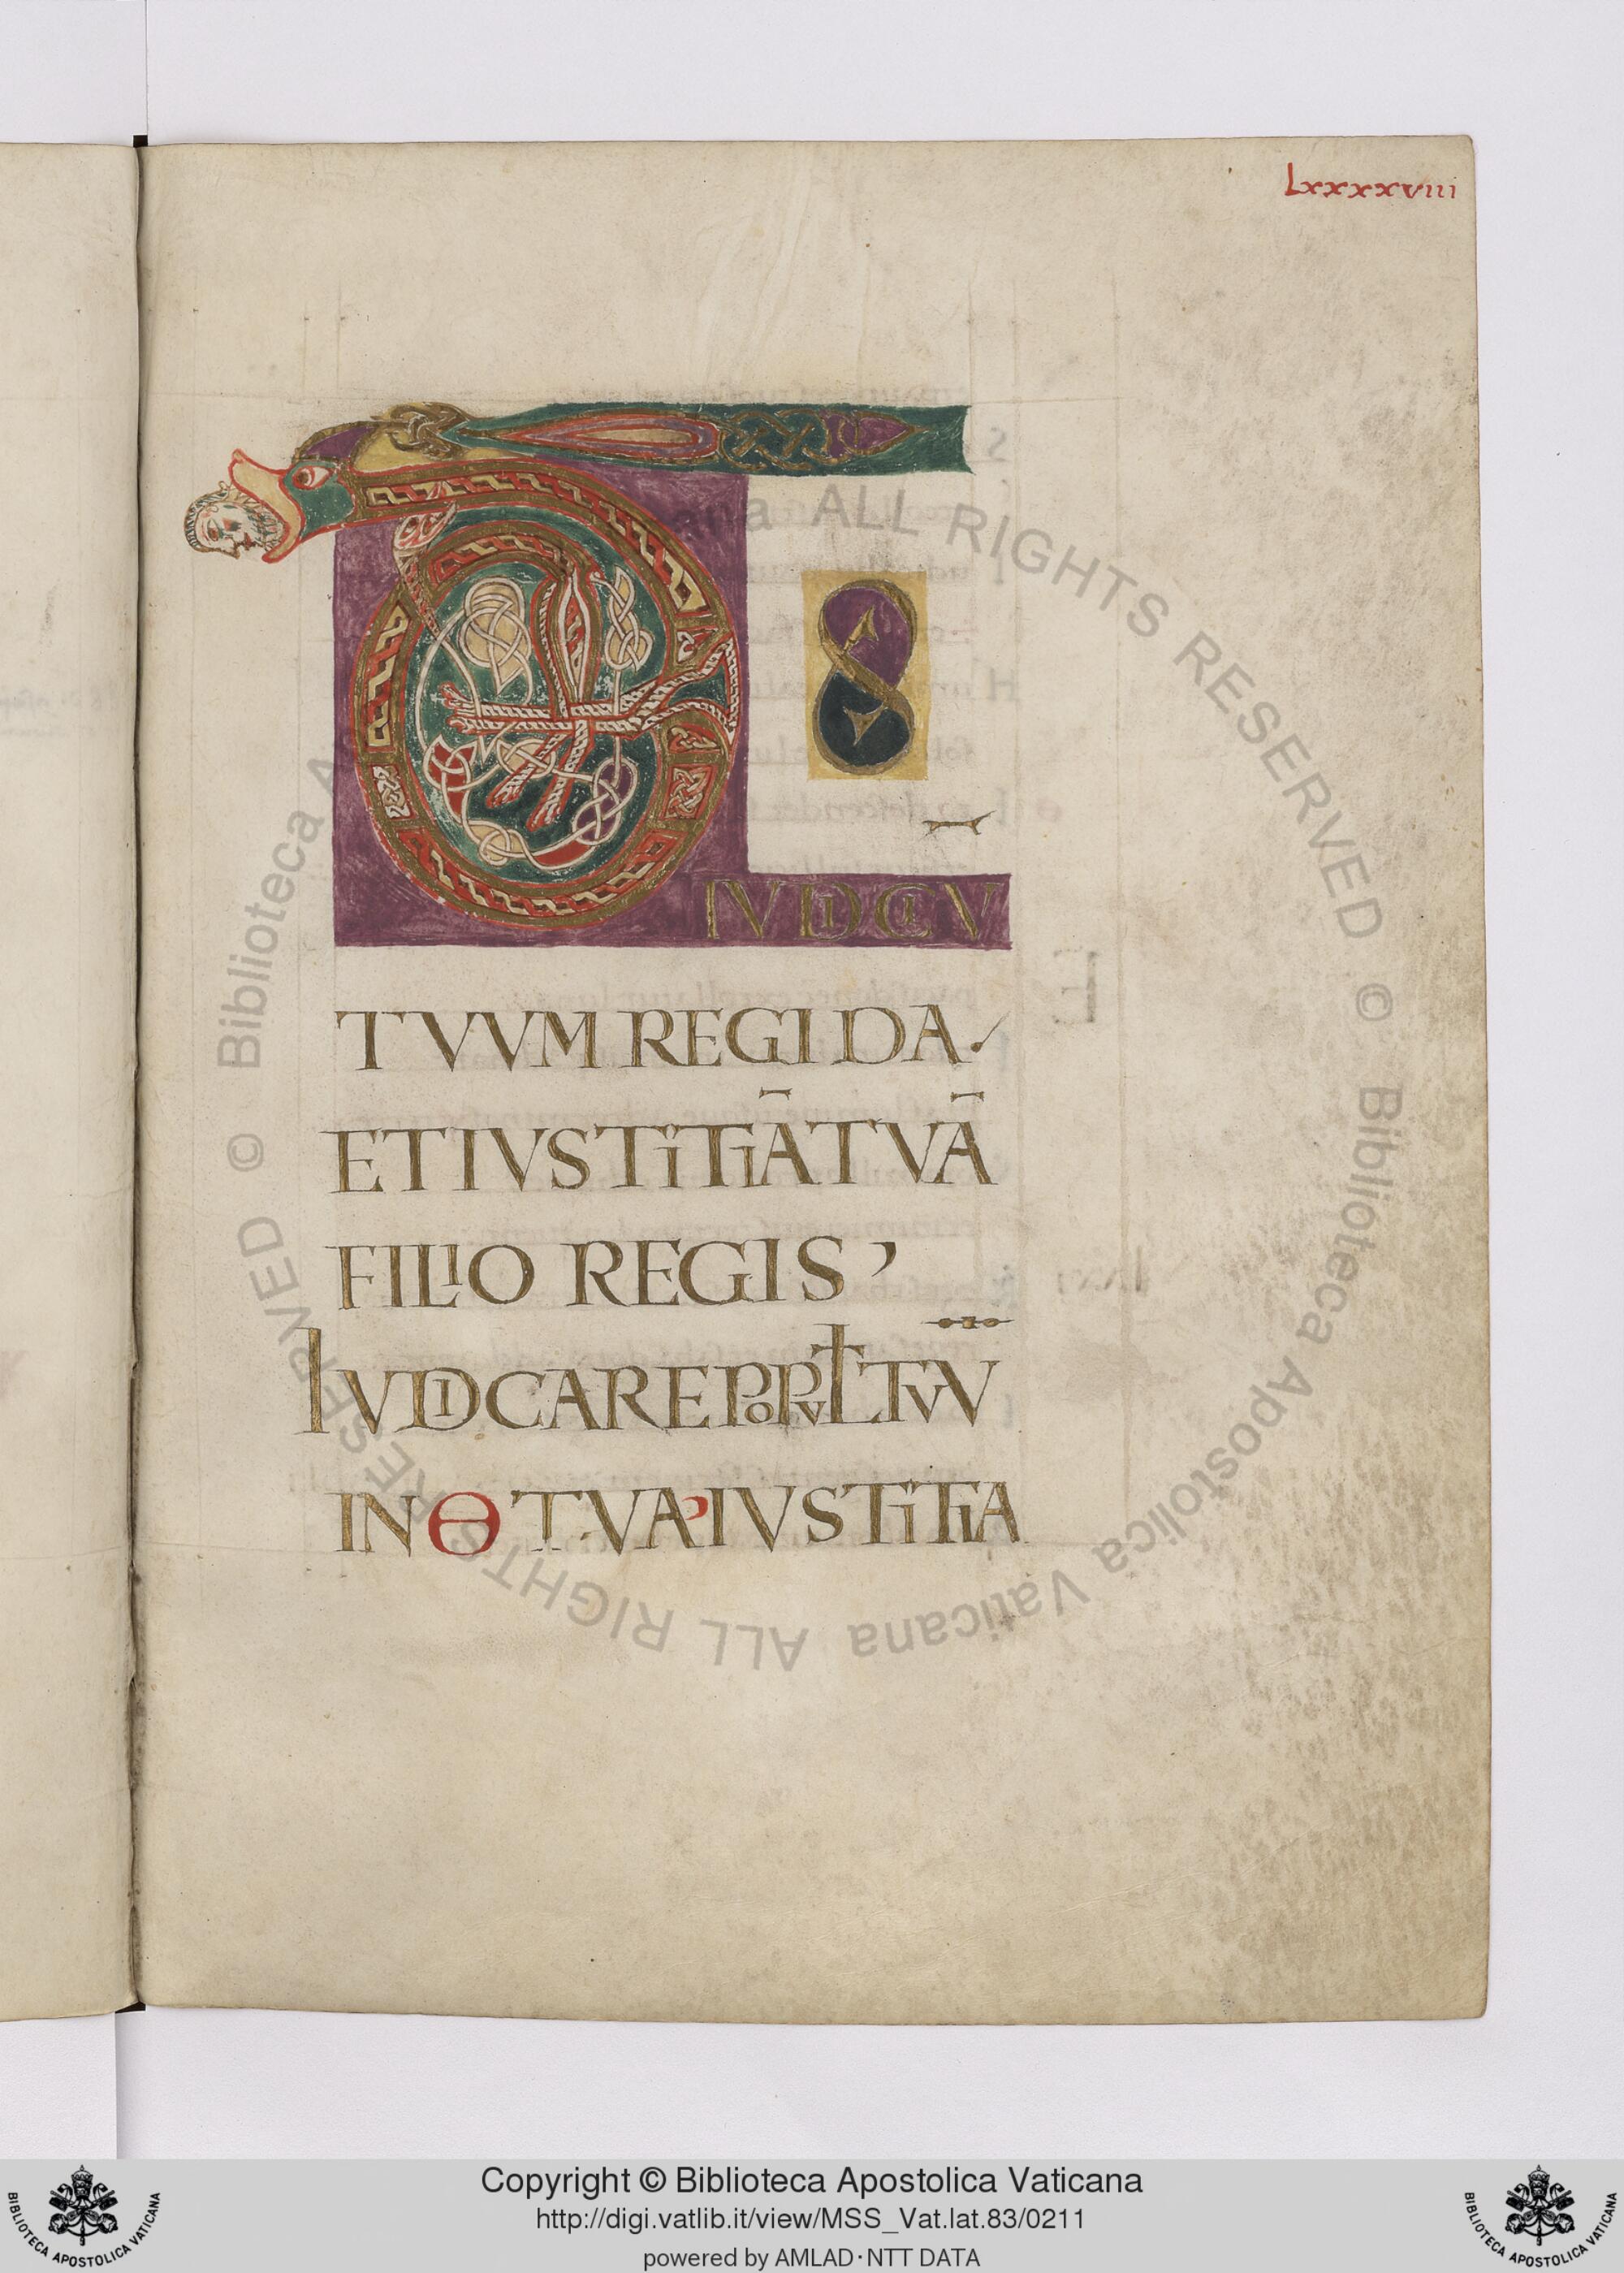 Lxxxxviii
DS
IVDICIV̄
TVVM REGI DA·
ET IVSTITIĀ TVĀ
FILIO REGIS,
IVDICARE POPVLV̄ TVV̄
IN Θ TVA IVSTITIA
© Biblioteca Apostolica Vaticana ALL RIGHTS RESERVED © Biblioteca Apostolica Vaticana ALL RIGHTS RESERVED
Copyright © Biblioteca Apostolica Vaticana
http://digi.vatlib.it/view/MSS_Vat.lat.83/0211
powered by AMLAD·NTT DATA
BIBLIOTECA APOSTOLICA VATICANA
BIBLIOTECA APOSTOLICA VATICANA